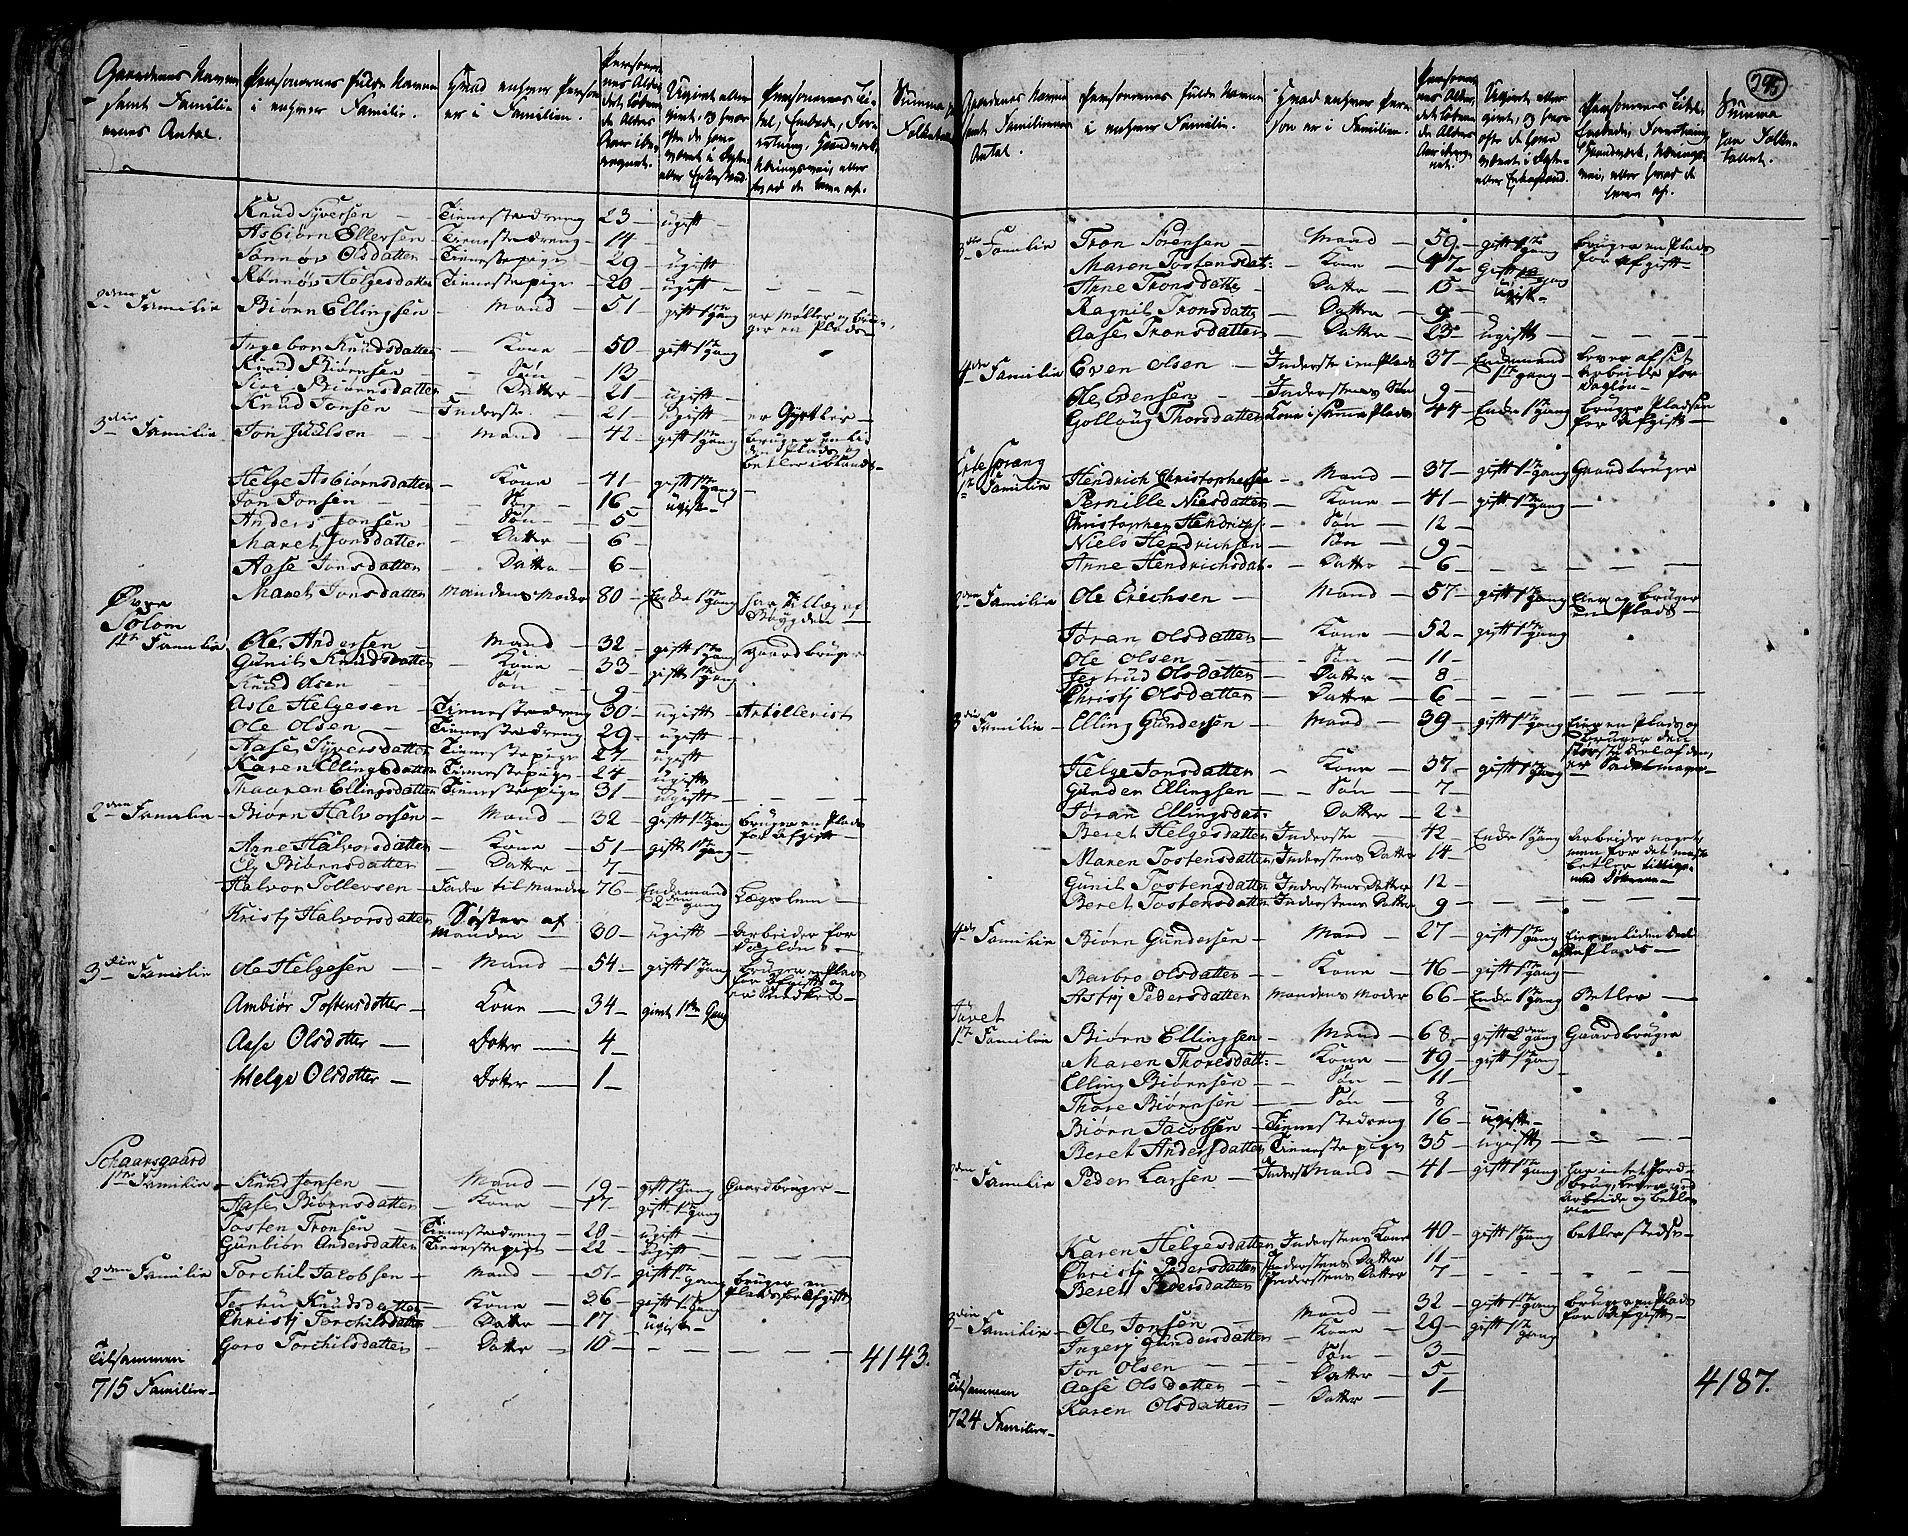 Gaardenes Navne samt Familiernes Antal.
Personernes fulde Navne i enhver Familie.
Hvad enhver Person er i Familien.
Personernes Alder det løbende Alders Aar iberegnet.
Ugivt eller givt, og hvor ofte de have været i Egte- eller Enkestand.
Personernes Titel, Embede, Forretning, Haandverk, Næringsvei, eller hvad de leve af.
Summa paa Folketallet.
Knud Syversen — Tienestedreng — 23 — ugift —
Asbiørn Ellersen — Tienestedreng — 14 —
Tienestepige — 29 — ugift
Rønnøv Helgesdatter Tienestepige — 20 — ugift —
2den Familie Biørn Ellingsen — Mand — 51 — gift 1te gang er Møller og bruger en Plads —
Ingebor Knudsdatter — Kone — 50 — gift 1te gang
Knud Biørnsen — Søn — 13 —
Biørnsdatter — Datter — 21 — ugift —
Knud Jonsen — Inderste — 21 — ugift — er Gjørtler —
3die Familie Jon Juulsen — Mand — 42 — gift 1te gang bruger en liden Plads og betler iblandt —
Helge Asbiørnsdatter — Kone — 41 — gift 1te gang
Jon Jonsen — Søn — 16 — ugift —
Anders Jonsen — Søn — 5
Maret Jonsdatter — Datter — 6 —
Aase Jonsdatter — Datter — 6 —
Maret Jonsdatter Mandens Moder 80 — Enke 1te gang har Tillæg af Bøygden —
Øvre Solom
1te Familie Ole Andersen — Mand — 32 — gift 1te gang Gaardbruger
Gunil Knudsdatter — Kone — 33 — gift 1te gang
Knud Olsen — Søn — 9
Asle Helgesen — Tienestedreng 30 — ugift — Artillerist
Ole Olsen — Tienestedreng 29 — ugift —
Aase Syversdatter Tienestepige — 27 — ugift
Karen Ellingsdatter Tienestepige — 24 — ugift
Thaaran Ellingsdatter Tienestepige — 31 — ugift —
2den Familie — Biørn Halvorsen — Mand — 32 — gift 1te gang bruger en Plads for Afgift —
Anne Halvorsdatter — Kone — 51 — gift 1te gang —
Biørnsdatter — Datter — 7 —
Halvor Tollevsen — Fader til Manden 76 — Enkemand 2den gang Lægselem —
Kristj Halvorsdatter Søster af Manden — 30 — ugift — Arbeider for Dagløn —
3die Familie Ole Helgesen — Mand — 54 — gift 1te gang bruger en Plads for Afgift og er
Ambiør Tostensdotter — Kone — 34 — givt 1te Gang
Aase Olsdotter — Dotter — 4 —
Helge Olsdotter — Dotter — 1 —
Schaarsgaard
1te Familie — Knud Jonsen — Mand — 19 — gift 1te gang Gaardbruger —
Aase Biørnsdatter — Kone — 17 — gift 1te gang
Tosten Tronsen — Tienestedreng — 20 — ugift —
Gunbiør Andersdatter Tienestepige — 22 — ugift —
2den Familie Torchil Jacobsen — Mand — 51 — gift 1te gang bruger en Plads for Afgift
Knudsdatter — Kone — 26 — gift 1te gang
Christj Torchilsdatter — Datter — 17 — ugift —
Goro Torchilsdatter — Datter — 10 —
Tilsammen
715 Familier —
4143.
245
Gaardenes Navne samt Familiernes Antal.
Personernes fulde Navne i enhver Familie.
Hvad enhver Person er i Familien.
Personernes Alder, det løbende Alders Aar iberegnet.
Ugivt eller givt, og hvor ofte de have været i Egte- eller Enkestand.
Personernes Titel, Embede, Forretning, Haandverk, Næringsvei, eller hvad de leve af.
Summa paa Folketallet.
3die Familie Tron Sørensen — Mand — 59 — gift 1te gang bruger en Plads for Afgift —
Maren Tostensdat: — Kone — 47 — Gift 1te gang
Anne Tronsdatter — Datter — 15 — ugift —
Ragnil Tronsdatter — Datter — 9 —
Aase Tronsdatter — Datter — 23 — ugift —
4de Familie Even Olsen — Inderste i en Plads 37 — Enkemand 1te gang — lever af sit Arbeide for Dagløn —
Ole Evensen — Inderstens Søn 9 —
Gollaug Thorsdatter Kone i samme Plads 44 — Enke 1te gang bruger Pladsen for Afgift —
Sprang
1te Familie Hendrich Christophersen — Mand — 37 — gift 1te gang Gaardbruger
Pernille Nielsdatter — Kone — 41 — gift 1te gang —
Christopher Hendrichs: — Søn — 12 —
Niels Hendrichsen — Søn — 9 —
Anne Hendrichsdat: — Datter — 6 —
2den Familie Ole Erichsen — Mand — 57 — gift 1te gang Eier og bruger en Plads —
Jøran Olsdatter — Kone — 52 — gift 1te gang
Ole Olsen — Søn — 11 —
Jertrud Olsdatter — Datter — 8 —
Christj Olsdatter — Datter — 6 —
3die Familie — Elling Gundersen — Mand — 39 — gift 1te gang Eier en Plads og bruger den største Deel af den, er Sadelmager —
Helge Jonsdatter — Kone — 37 — gift 1te gang
Gunder Ellingsen — Søn — 7 —
Jøran Ellingsdat: — Datter — 2 —
Beret Helgesdatter Inderste — 42 Enke 1te gang Arbeider noget, men for det meste betler tillige med Døttrene —
Maren Tostensdatter Inderstens Datter 14 —
Gunil Tostensdatter Inderstens Datter 12 —
Beret Tostensdatter Inderstens Datter 9 —
4de Familie Biørn Gundersen — Mand — 27 — gift 1te gang Eier en liden Deel af en Plads —
Barbro Olsdatter — Kone — 46 — gift 1te gang —
Astrj Pedersdatter Mandens Moder 66 — Enke 1te gang Betler —
Juvet
1te Familie Biørn Ellingsen — Mand — 68 — gift 2den gang Gaardbruger
Maren Thoresdatt: — Kone — 49 — gift 1te gang
Elling Biørnsen — Søn — 11 —
Thore Biørnsen — Søn — 8
Biørn Jacobsen — Tienestedreng — 16 — ugift —
Beret Andersdatter Tienestepige — 35 — ugift —
2den Familie Peder Larsen — Inderst Mand — 41 — gift 1te gang har intet Jordbrug, lever ved Arbeide og betlerie
Karen Helgesdatter Inderstens Kone 40 — gift 1te gang betler stedse —
Christj Pedersdatter Inderstens Datter 11 —
Beret Pedersdatter Inderstens Datter 7 —
3die Familie — Ole Jonsen — Mand — 32 — gift 1te gang bruger en Plads for Afgift —
Ingerj Gundersdatter — Kone — 29 — gift 1te gang
Jon Olsen — Søn — 3 —
Aase Olsdatter — Datter — 5 —
Karen Olsdatter — Datter — 1 —
Tilsammen
724 Familier —
4187.